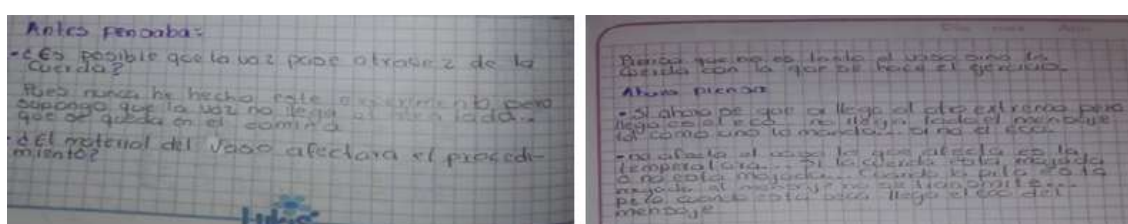 Antes pensaba:
-¿Es posible que la voz pase atravez de la
cuerda?
Pues nunca he hecho este experimento pero
supongo que la voz no llega al otro lado..
que se queda en el camino
-¿El material del vaso afectara el procedi-
miento?
que no es tanto el vaso sino la
cuerda con la que se hace el ejercicio.
Ahora pienso:
-Si ahora se que si llega al otro extremo pero
llega es el eco.. no llega todo el mensaje
tal como uno lo manda.. si no el eco.
-no afecta el vaso lo que afecta es la
temperatura.. Si la cuerda esta mojada
o no esta mojada.. cuando la pita esta
mojada el mensaje no se transmite..
pero cuando esta seca llega el eco del
mensaje